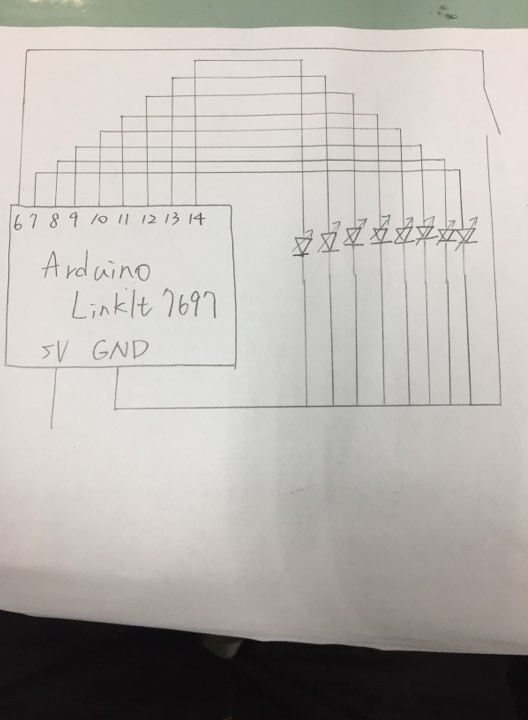 6 7 8 9 10 11 12 13 14
Arduino
LinkIt 7697
5V GND